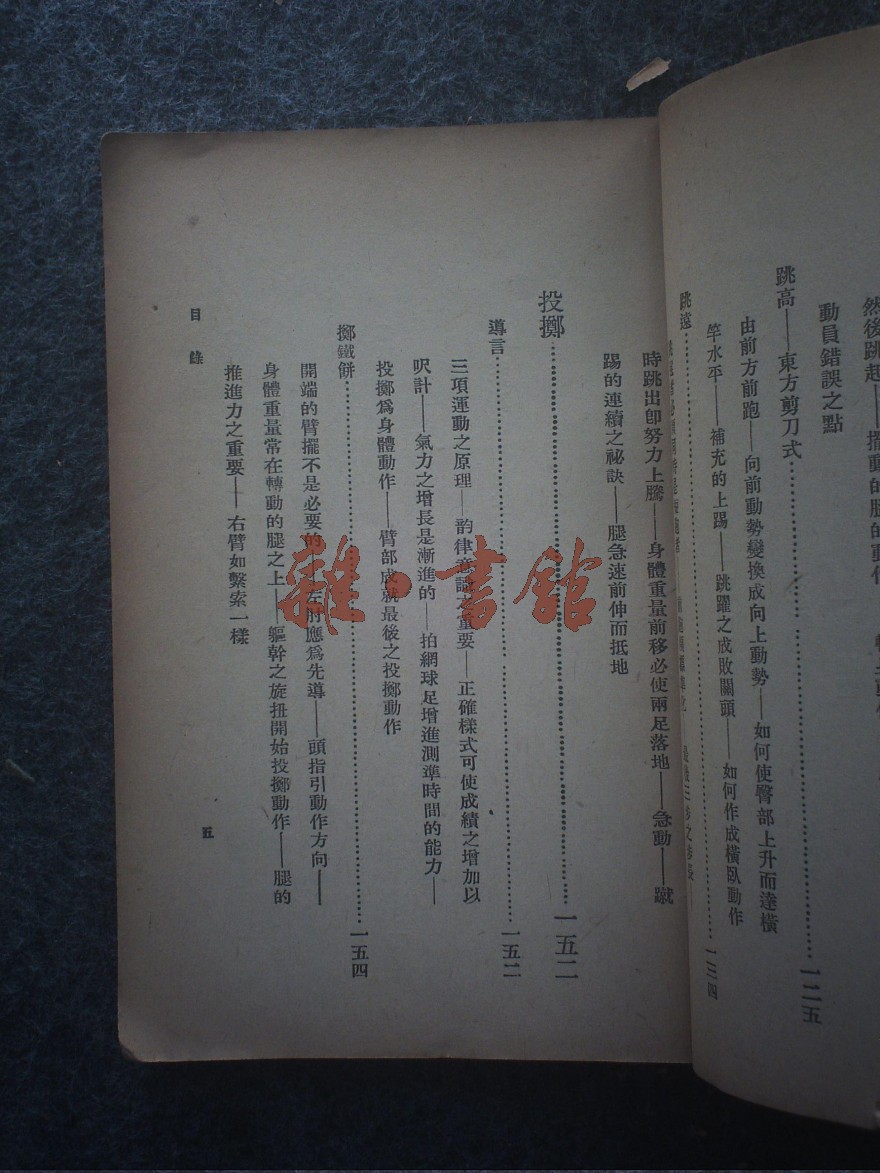 然後跳起——擺動的腿的動作
動員錯誤之點
跳高——東方剪刀式……一二五
由前方前跑——向前動勢變換成向上動勢——如何使臀部上升而達橫
竿水平——補充的上踢——跳躍之成敗關頭——如何作成橫臥動作
跳遠……一三四
時跳出卽努力上騰——身體重量前移必使兩足落地——急動——蹴
踢的連續之祕訣——腿急速前伸而抵地
投擲……一五二
導言……一五二
三項運動之原理——韵律意識之重要——正確樣式可使成績之增加以
呎計——氣力之增長是漸進的——拍網球足增進測準時間的能力——
投擲爲身體動作——臂部成就最後之投擲動作
擲鐵餅……一五四
開端的臂擺不是必要的——左肘應爲先導——頭指引動作方向——
身體重量常在轉動的腿之上——軀幹之旋扭開始投擲動作——腿的
推進力之重要——右臂如繫索一樣
目錄
五
雜·書館